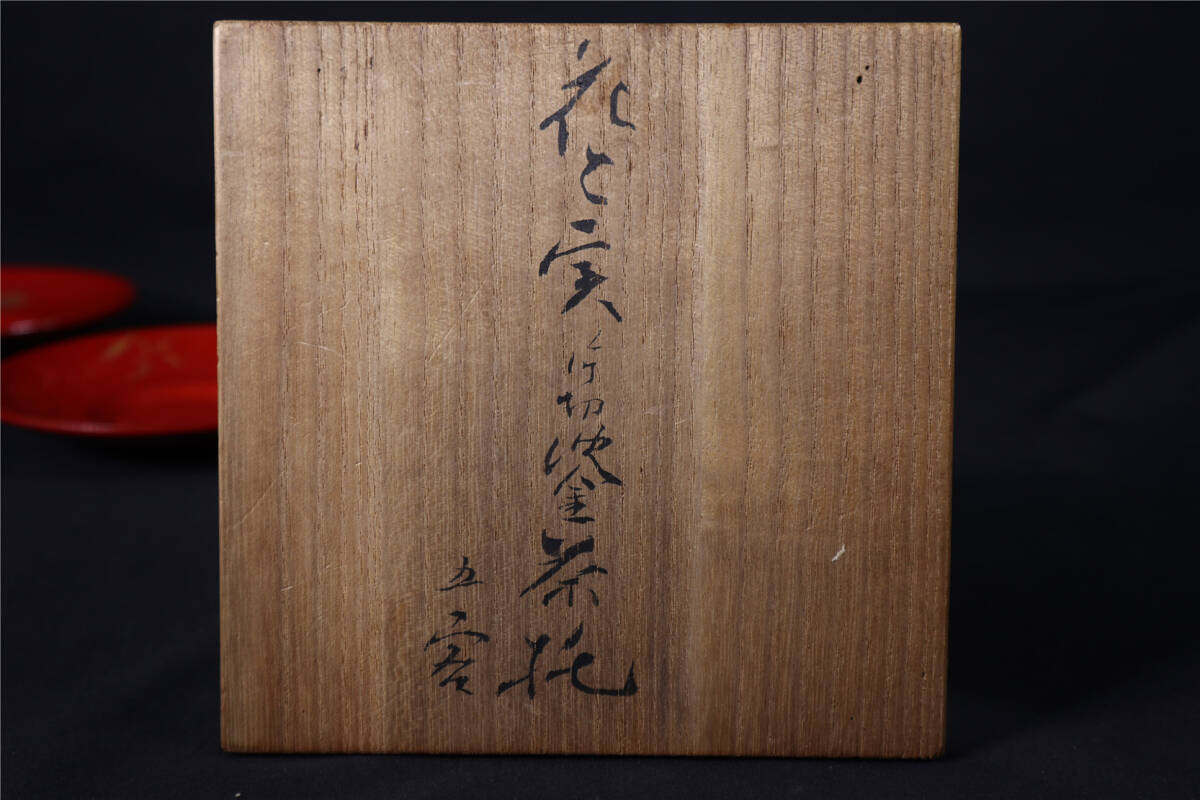 花と実片切沈金茶托
五客